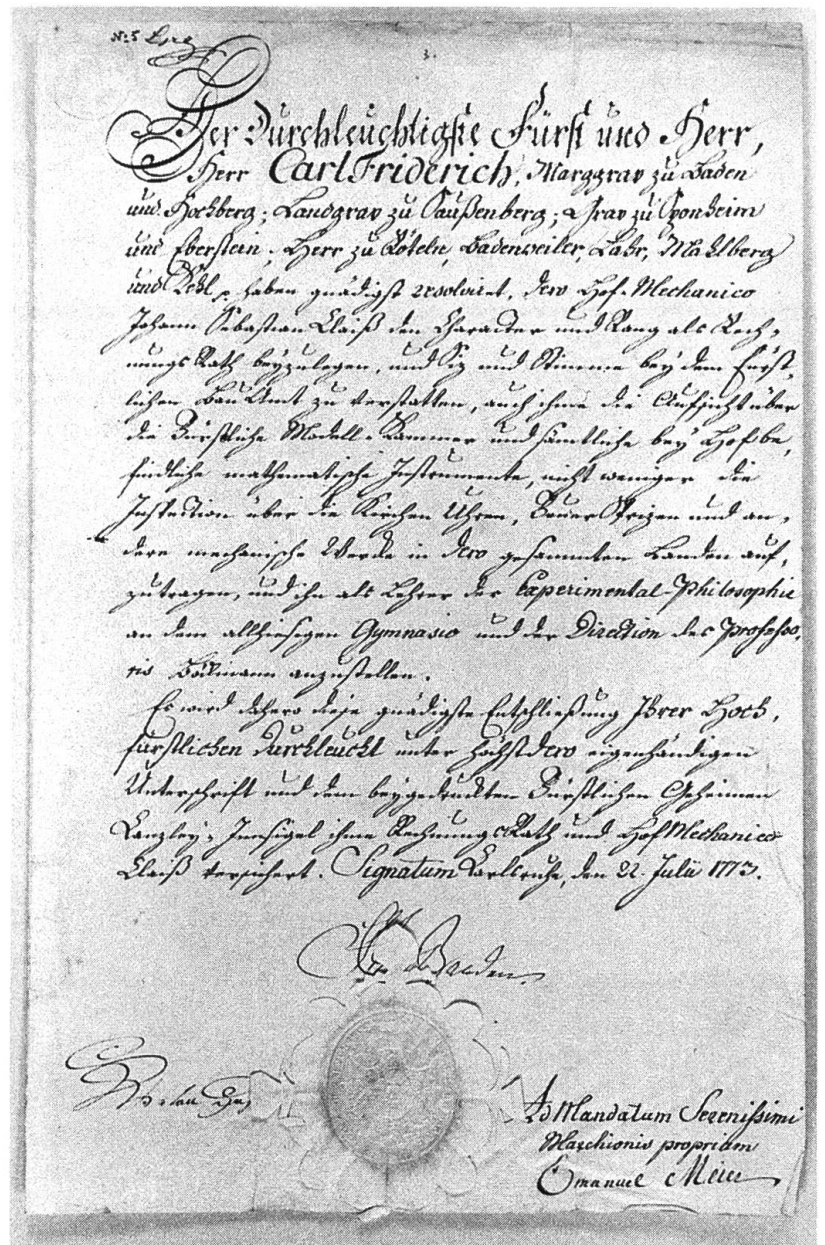 3.
Der Durchleuchtigste Fürst und Herr,
Herr Carl Friderich, Marggrav zu Baden
und Hochberg; Landgrav zu Saußenberg; Grav zu Sponheim
und Eberstein; Herr zu Röteln, Badenweiler, Lahr, Mahlberg
und Kehl p. haben gnädigst resolviret, dero Hof-Mechanico
Johann Sebastian Claiß den Character und Rang als Rech-
nungs Rath beyzulegen, und Siz und Stimme bey dem Fürst-
lichen Bau Amt zu verstatten, auch ihme die Aufsicht über
die Fürstliche Modell-Kammer und sämtliche bey Hof be-
findliche mathematische Instrumente, nicht weniger die
Inspection über die Kirchen Uhren, Feuer Sprizen und an-
dere mechanische Werke in dero gesammten Landen auf-
zutragen, und ihn als Lehrer der Experimental-Philosophie
an dem allhiesigen Gymnasio und der Direction des Professo-
ris Bökmann anzustellen.
Es wird dahero diese gnädigste Entschließung Ihrer Hoch-
fürstlichen Durchleucht unter Höchst dero eigenhändigen
Unterschrift und dem beygedrukten Fürstlichen Geheimen
Canzley-Innsigel ihme Rechnungs Rath und Hof Mechanico
Claiß versichert. Signatum Carlsruhe, den 22. Julii 1773.
Baden
Ad Mandatum Serenissimi
Marchionis proprium
Emanuel Meier